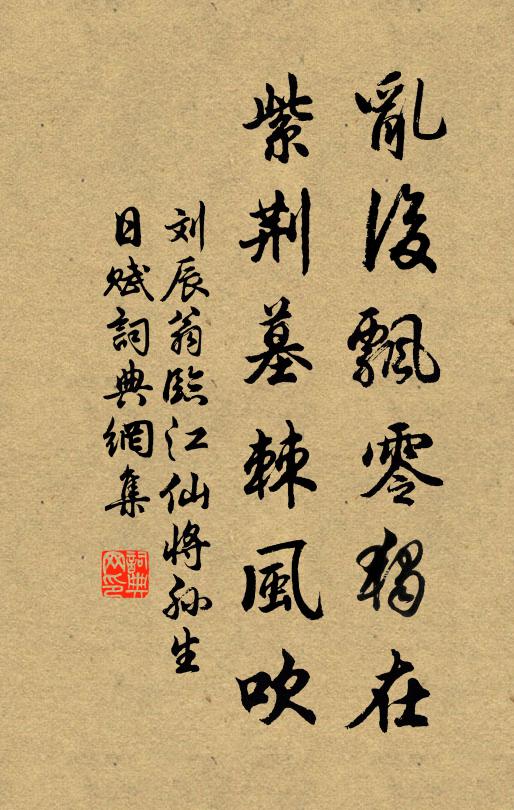 亂後飄零獨在
紫荆墓棘風吹
刘辰翁臨江仙將孙生
日赋詞典網集
詞典网印